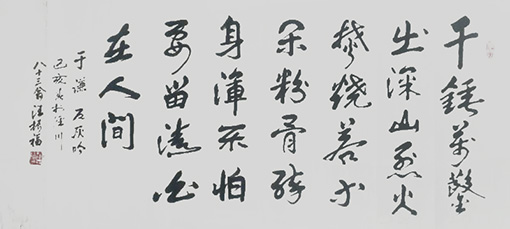 千錘萬鑿
出深山烈火
焚燒若等
閑粉骨碎
身渾不怕
要留清白
在人間
于謙 石灰吟
己亥
八十三翁汪福